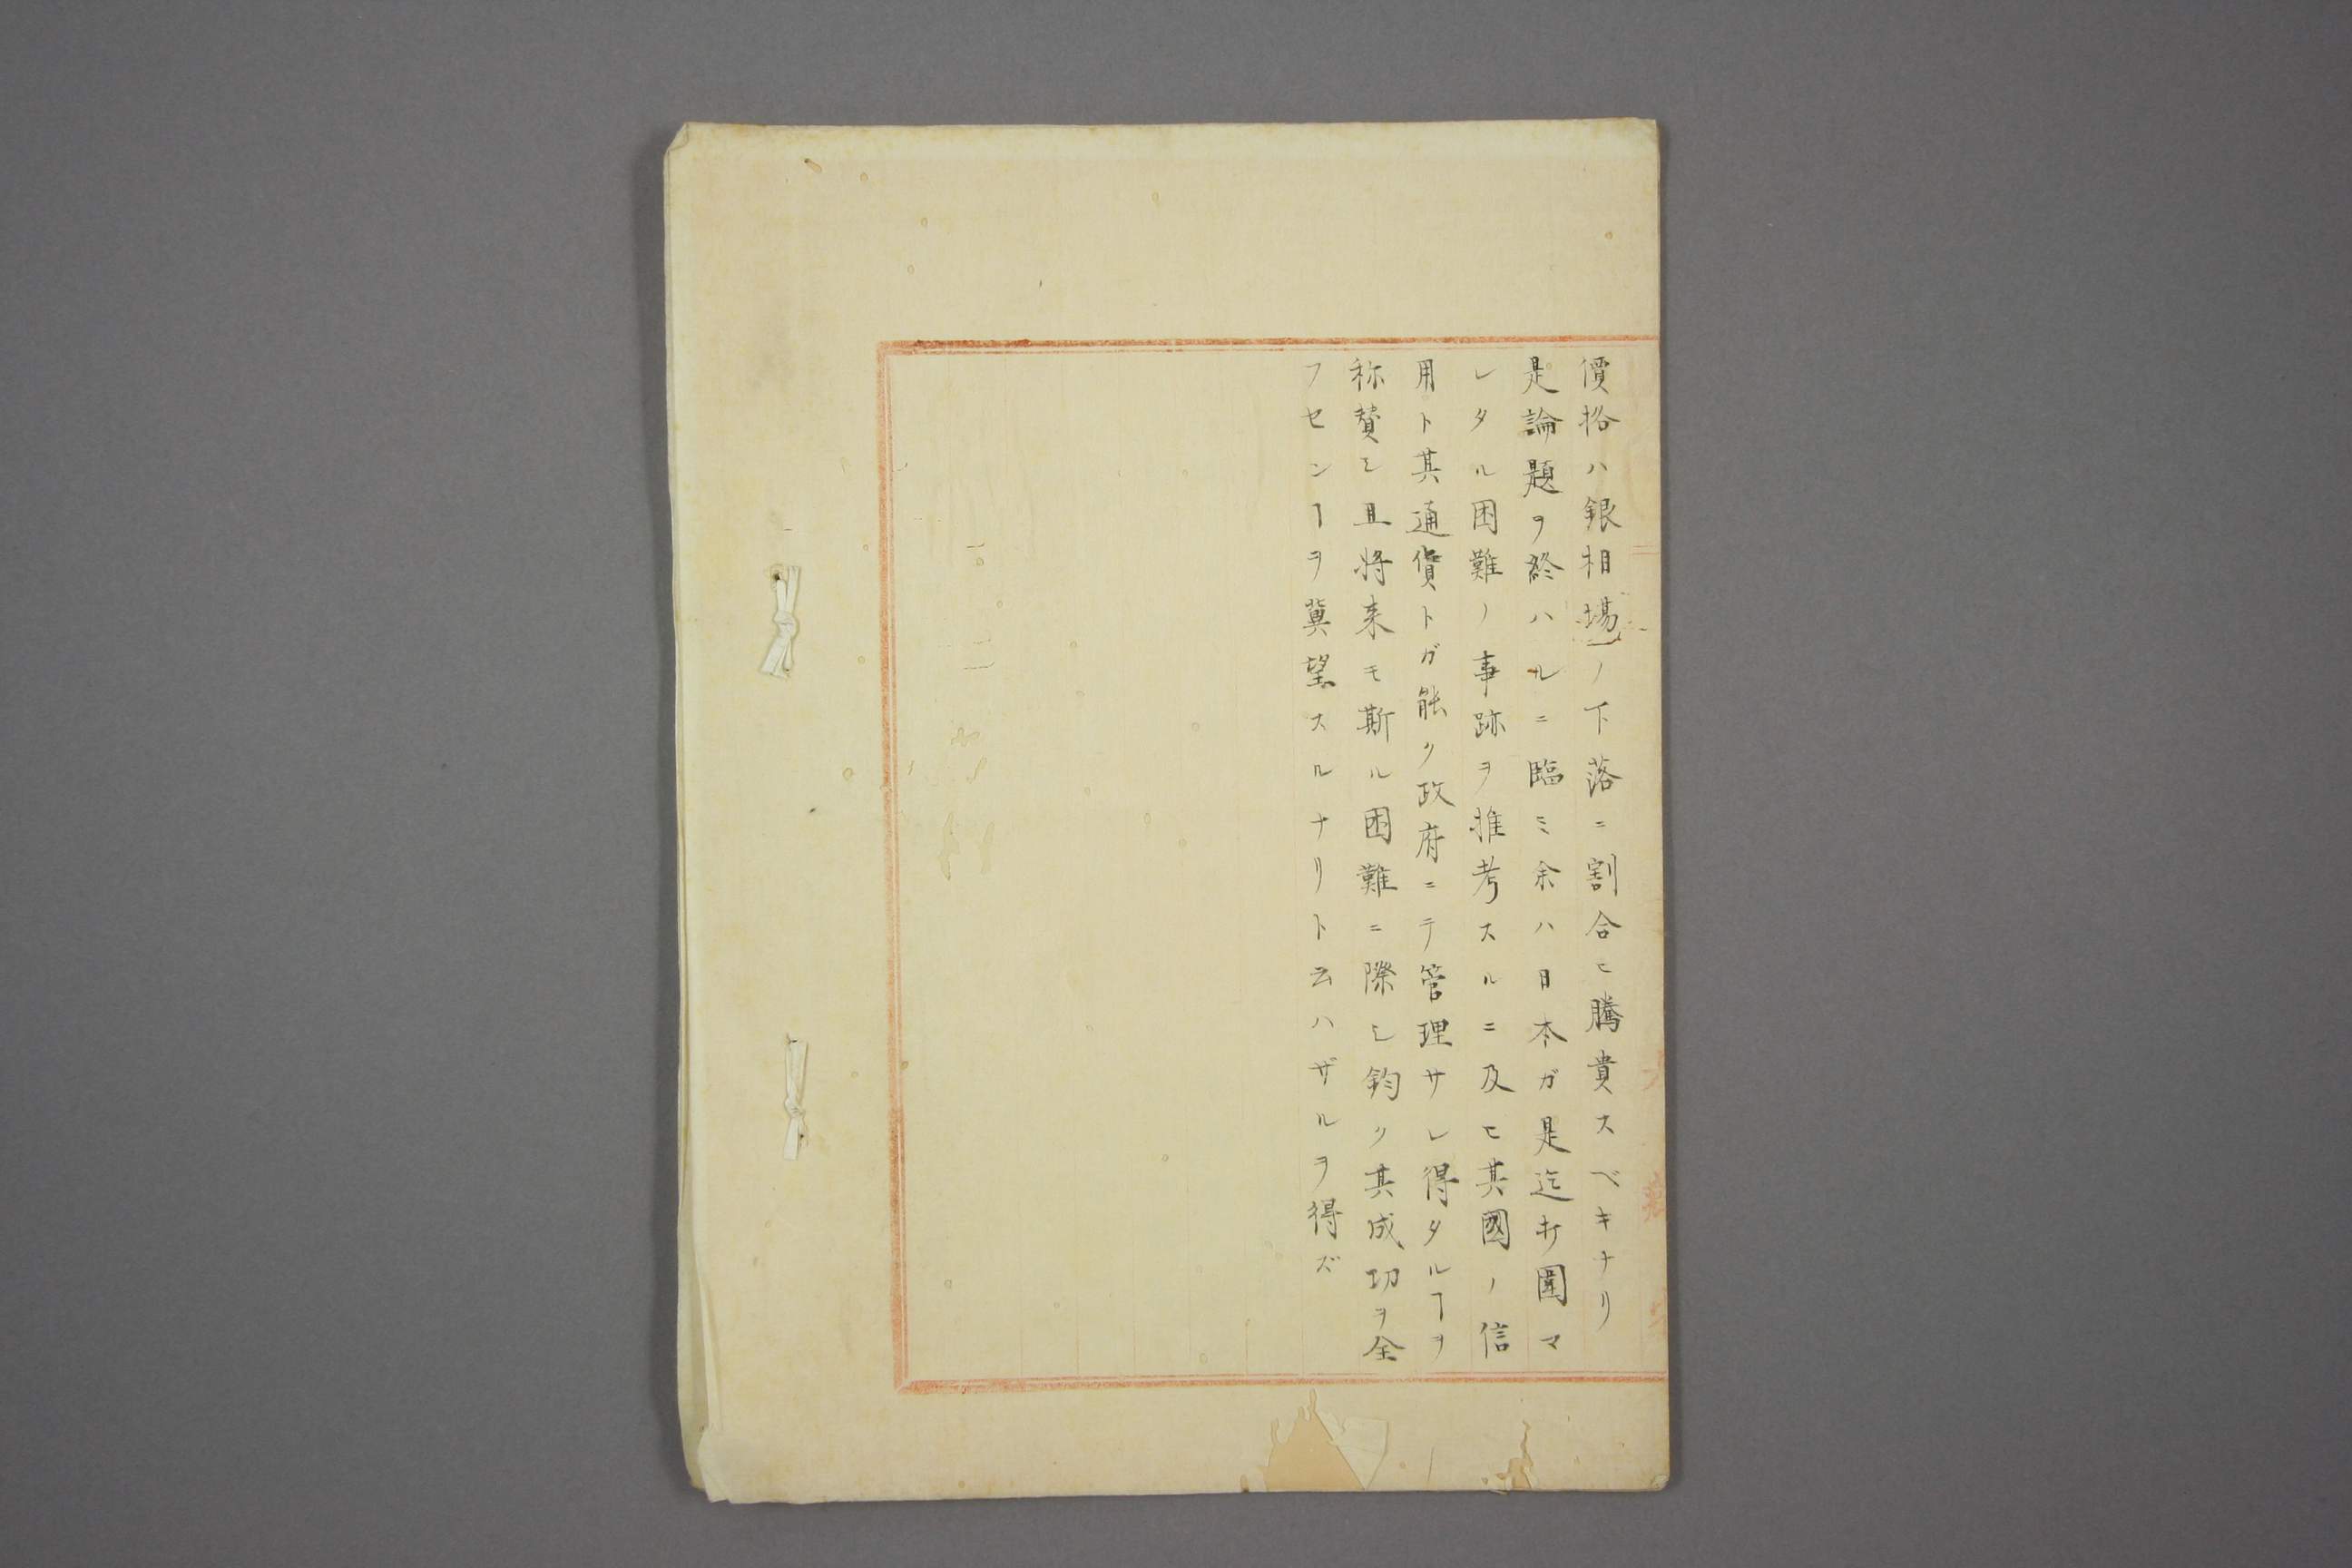 價格ハ銀相場ノ下落ニ割合ヒ騰貴スベキナリ
是論題ヲ終ハルニ臨ミ余ハ日本ガ是迄打圍マ
レタル困難ノ事跡ヲ推考スルニ及ヒ其國ノ信
用ト其通貨トガ能ク政府ニテ管理サレ得タルヿヲ
称賛シ且将来モ斯ル困難ニ際シ鈞ク其成功ヲ全
フセンヿヲ冀望スルナリト云ハザルヲ得ズ